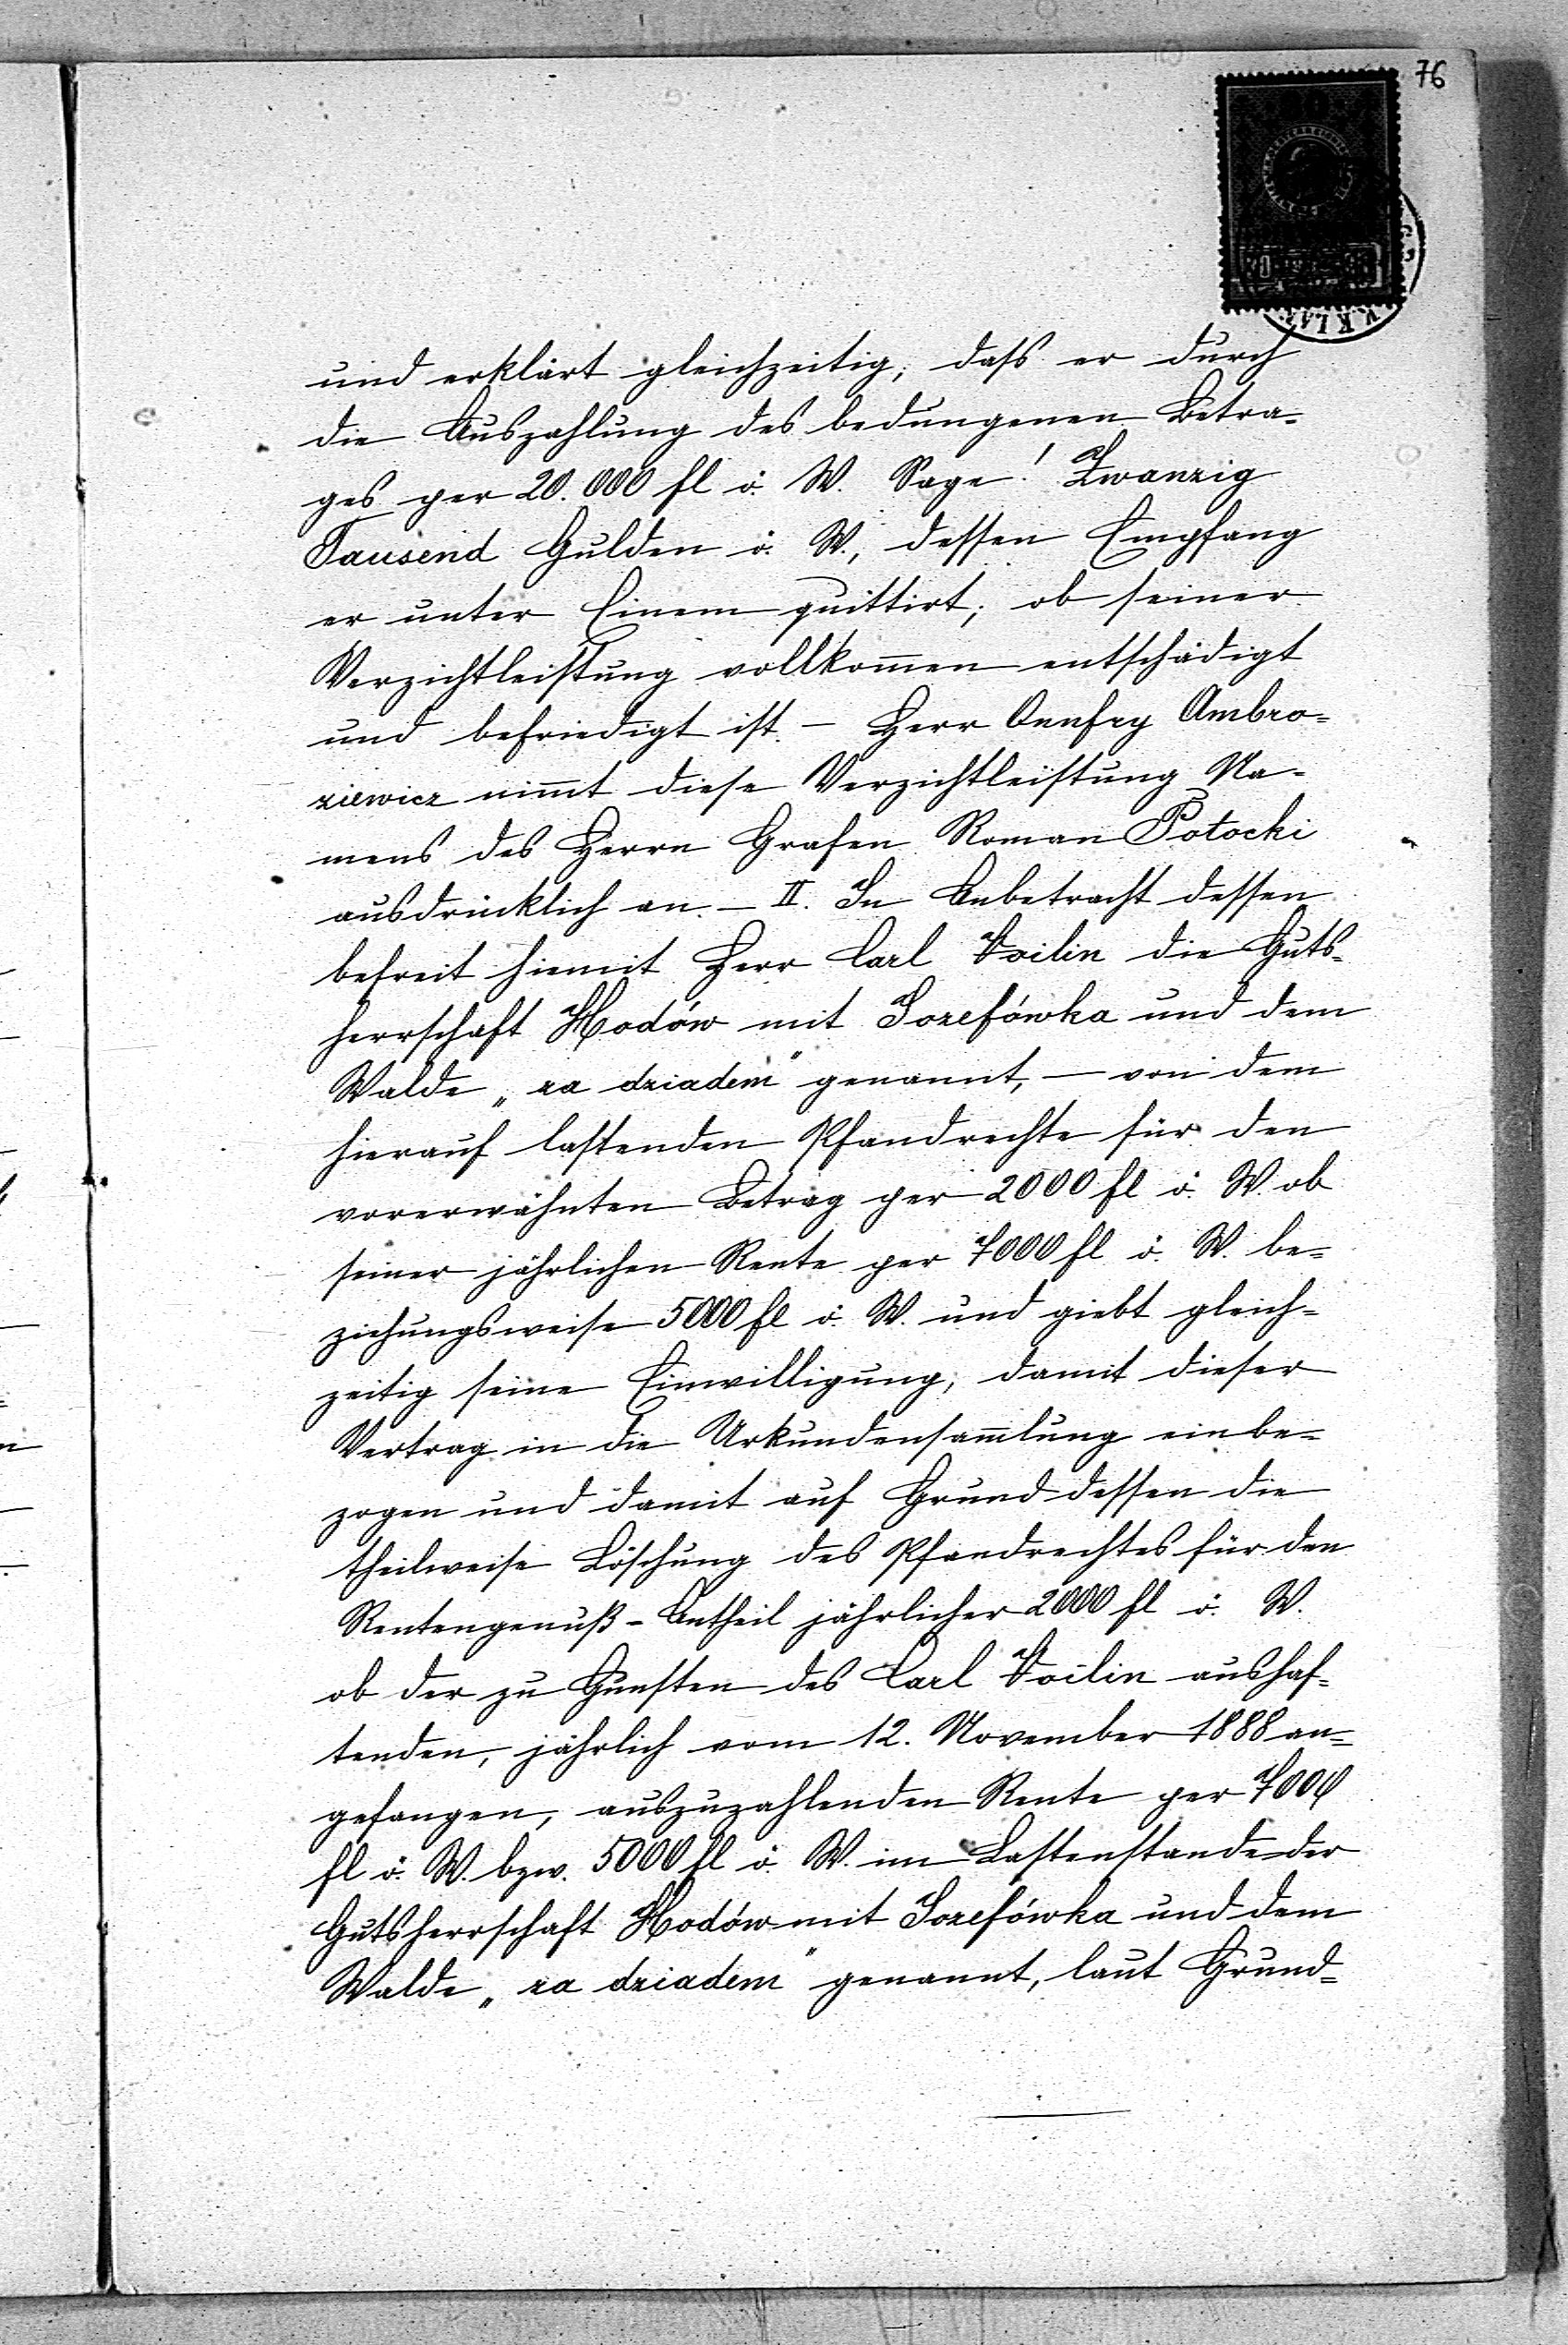 76
und erklärt gleichzeitig, dass er durch
die Auszahlung des bedungenen Betra=
ges per 20.000 fl ö. W. Sage! Zwanzig
Tausend Gulden ö. W., dessen Empfang
er unter Einem quittirt, ob seiner
Verzichtleistung vollkom̄en entschädigt
und befriedigt ist. — Herr Onufry Ambro=
ziewicz nim̄t diese Verzichtleistung Na=
mens des Herrn Grafen Roman Potocki
ausdrücklich an. — II. In Anbetracht dessen
befreit hiemit Herr Carl Voilin die Guts=
herrschaft Hodów mit Jozefówka und dem
Walde „za dziadem" genannt, — von dem
hierauf lastenden Pfandrechte für den
vorerwähnten Betrag per 2000 fl ö. W. ob
seiner jährlichen Rente per 7000 fl ö. W. be=
ziehungsweise 5000 fl ö. W. und giebt gleich=
zeitig seine Einwilligung, damit dieser
Vertrag in die Urkundensam̄lung einbe=
zogen und damit auf Grund dessen die
theilweise Löschung des Pfandrechtes für den
Rentengenuß-Antheil jährlicher 2000 fl ö. W.
ob der zu Gunsten des Carl Voilin aushaf=
tenden, jährlich vom 12. November 1888 an=
gefangen, auszuzahlenden Rente per 7000
fl ö. W. bzw. 5000 fl ö. W. im Lastenstande der
Gutsherrschaft Hodów mit Jozefówka und dem
Walde „za dziadem" genannt, laut Grund=